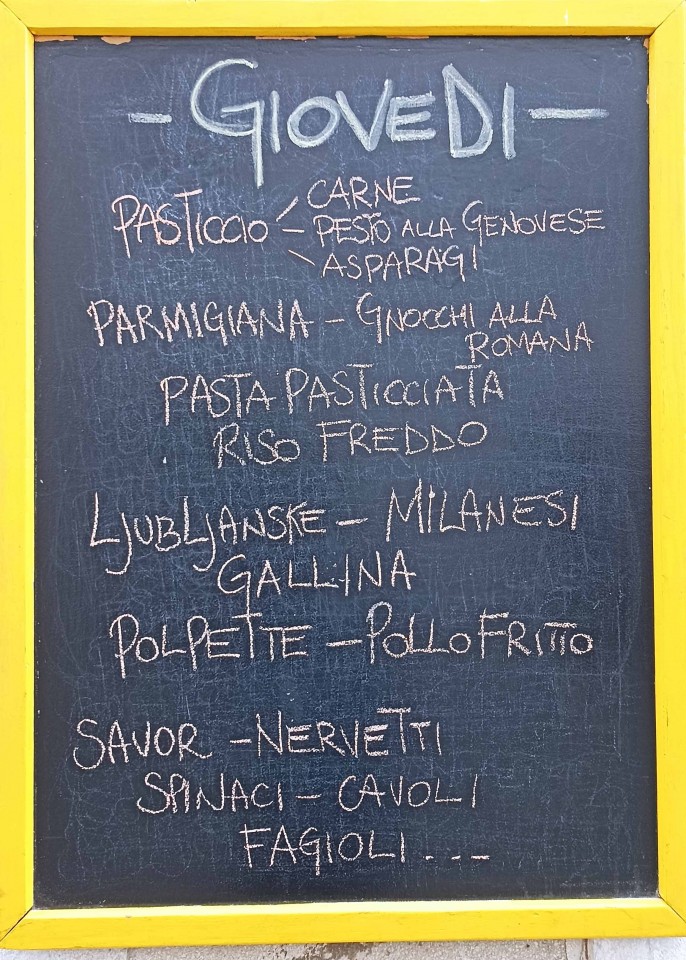 - GIOVEDI -
PASTICCIO - CARNE
- PESTO ALLA GENOVESE
- ASPARAGI
PARMIGIANA - GNOCCHI ALLA
ROMANA
PASTA PASTICCIATA
RISO FREDDO
LJUBLJANSKE - MILANESI
GALLINA
POLPETTE - POLLO FRITTO
SAVOR - NERVETTI
SPINACI - CAVOLI
FAGIOLI . - - -